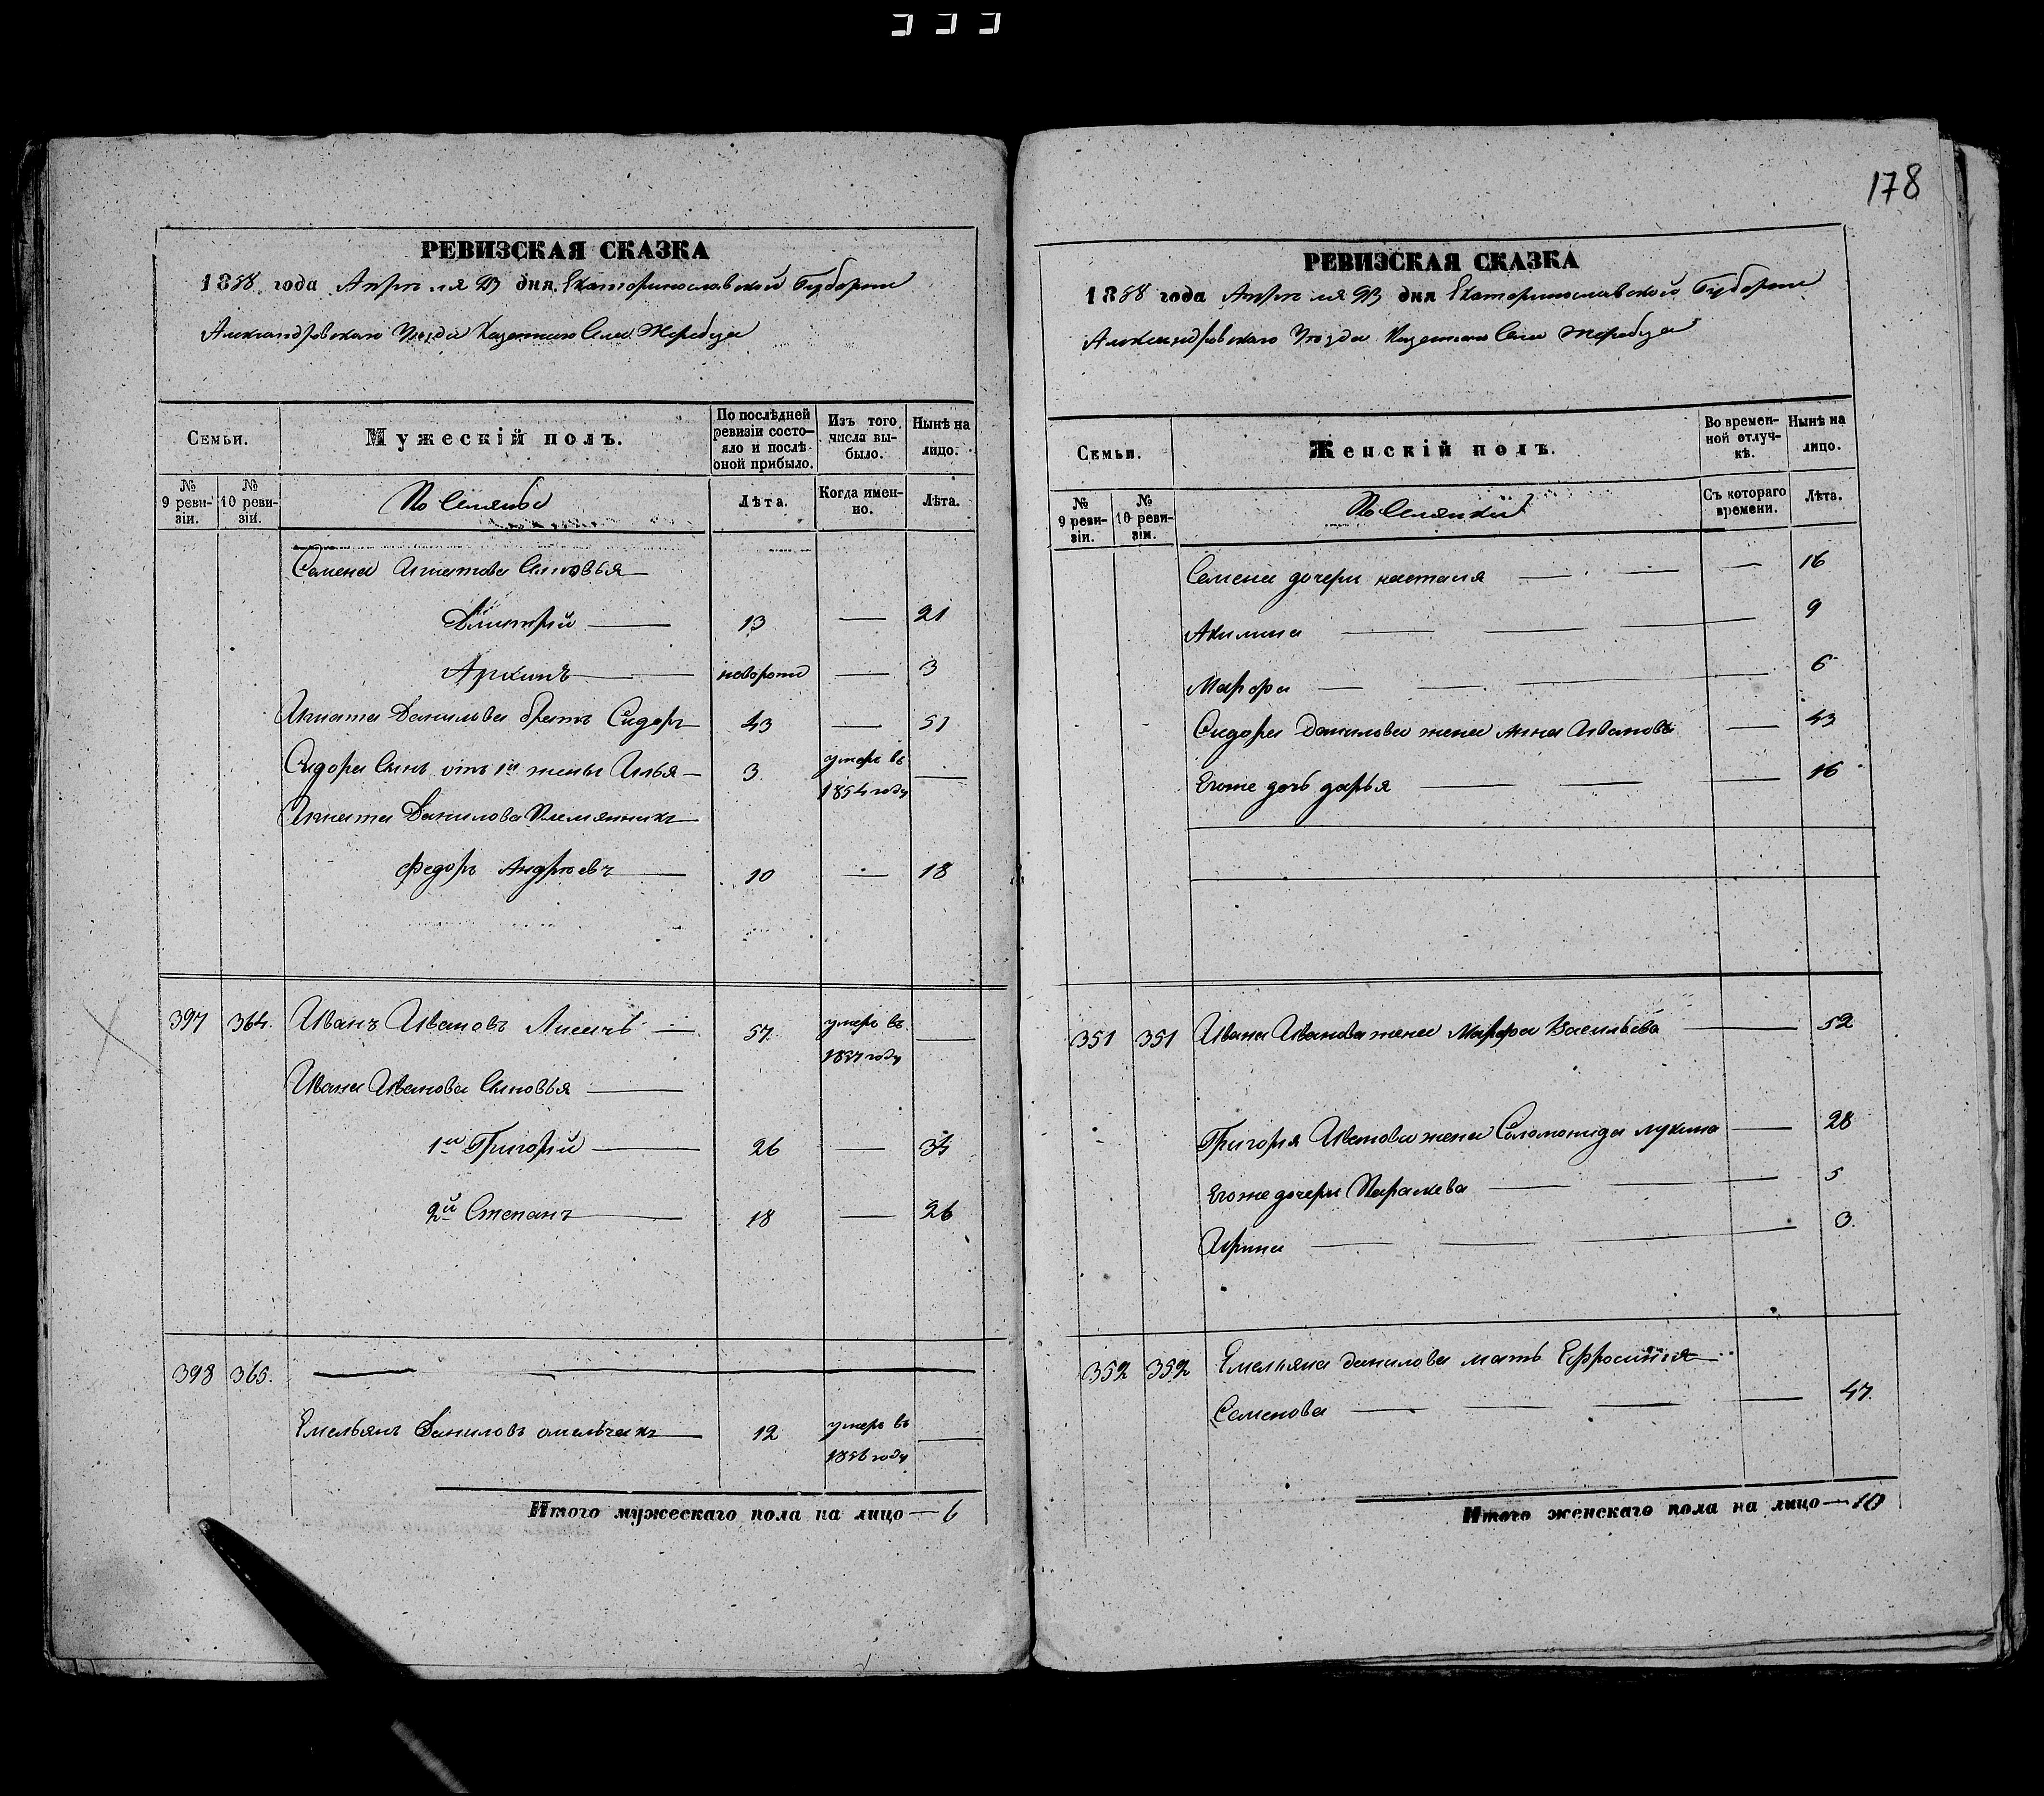 333
178
РЕВИЗСКАЯ СКАЗКА
1858 года Апреля 23 дня Екатеринославской Губернии
Александровскаго Уезда Казеннаго Села Жеребца
Семьи.
Мужескій полъ.
По послѣдней ревизіи состо-яло и послѣ оной прибыло.
Изъ того числа вы-было.
Нынѣ на лицо.
№ 9 реви-зіи.
№ 10 реви-зіи.
Лѣта.
Когда имен-но.
Лѣта.
Семена Игнатова Сыновья
Дмитрій 13 — 21
новорож — 3
Игната Данилова братъ Сидоръ 43 — 51
Сидора Сынъ отъ 1й жены Илья 3 умеръ въ 1854 году —
Игната Данилова Племянникъ
Федоръ Андреевъ 10 — 18
397 364. Иванъ Ивановъ Лисичь 57. умеръ въ 1857 году —
Ивана Иванова Сыновья
1й Григорій 26 — 34
2й Степанъ 18 — 26
398 365.
Емельянъ Даниловъ омельчакъ 12 умеръ въ 1856 году —
Итого мужескаго пола на лицо — 6
РЕВИЗСКАЯ СКАЗКА
1858 года Апреля 23 дня Екатеринославской Губернии
Александровскаго Уезда Казеннаго Села Жеребца
Семьи.
Женскій полъ.
Во времен-ной отлуч-кѣ.
Нынѣ на лицо.
№ 9 реви-зіи.
№ 10 реви-зіи.
Съ котораго времени.
Лѣта.
Семена дочери настася — 16
Акилина — 9
Марфа — 6
Сидора Данилова жена Анна Иванова — 43
Егоже дочь дарья — 16
351 351 Ивана Иванова жена Марфа Васильева — 52
Григорія Иванова жена Соломонида лукина — 28
Егоже дочери Параскева — 5
Ирина — 3.
352 352 Емельяна данилова мать Ефросинія
Семенова — 47.
Итого женскаго пола на лицо — 10